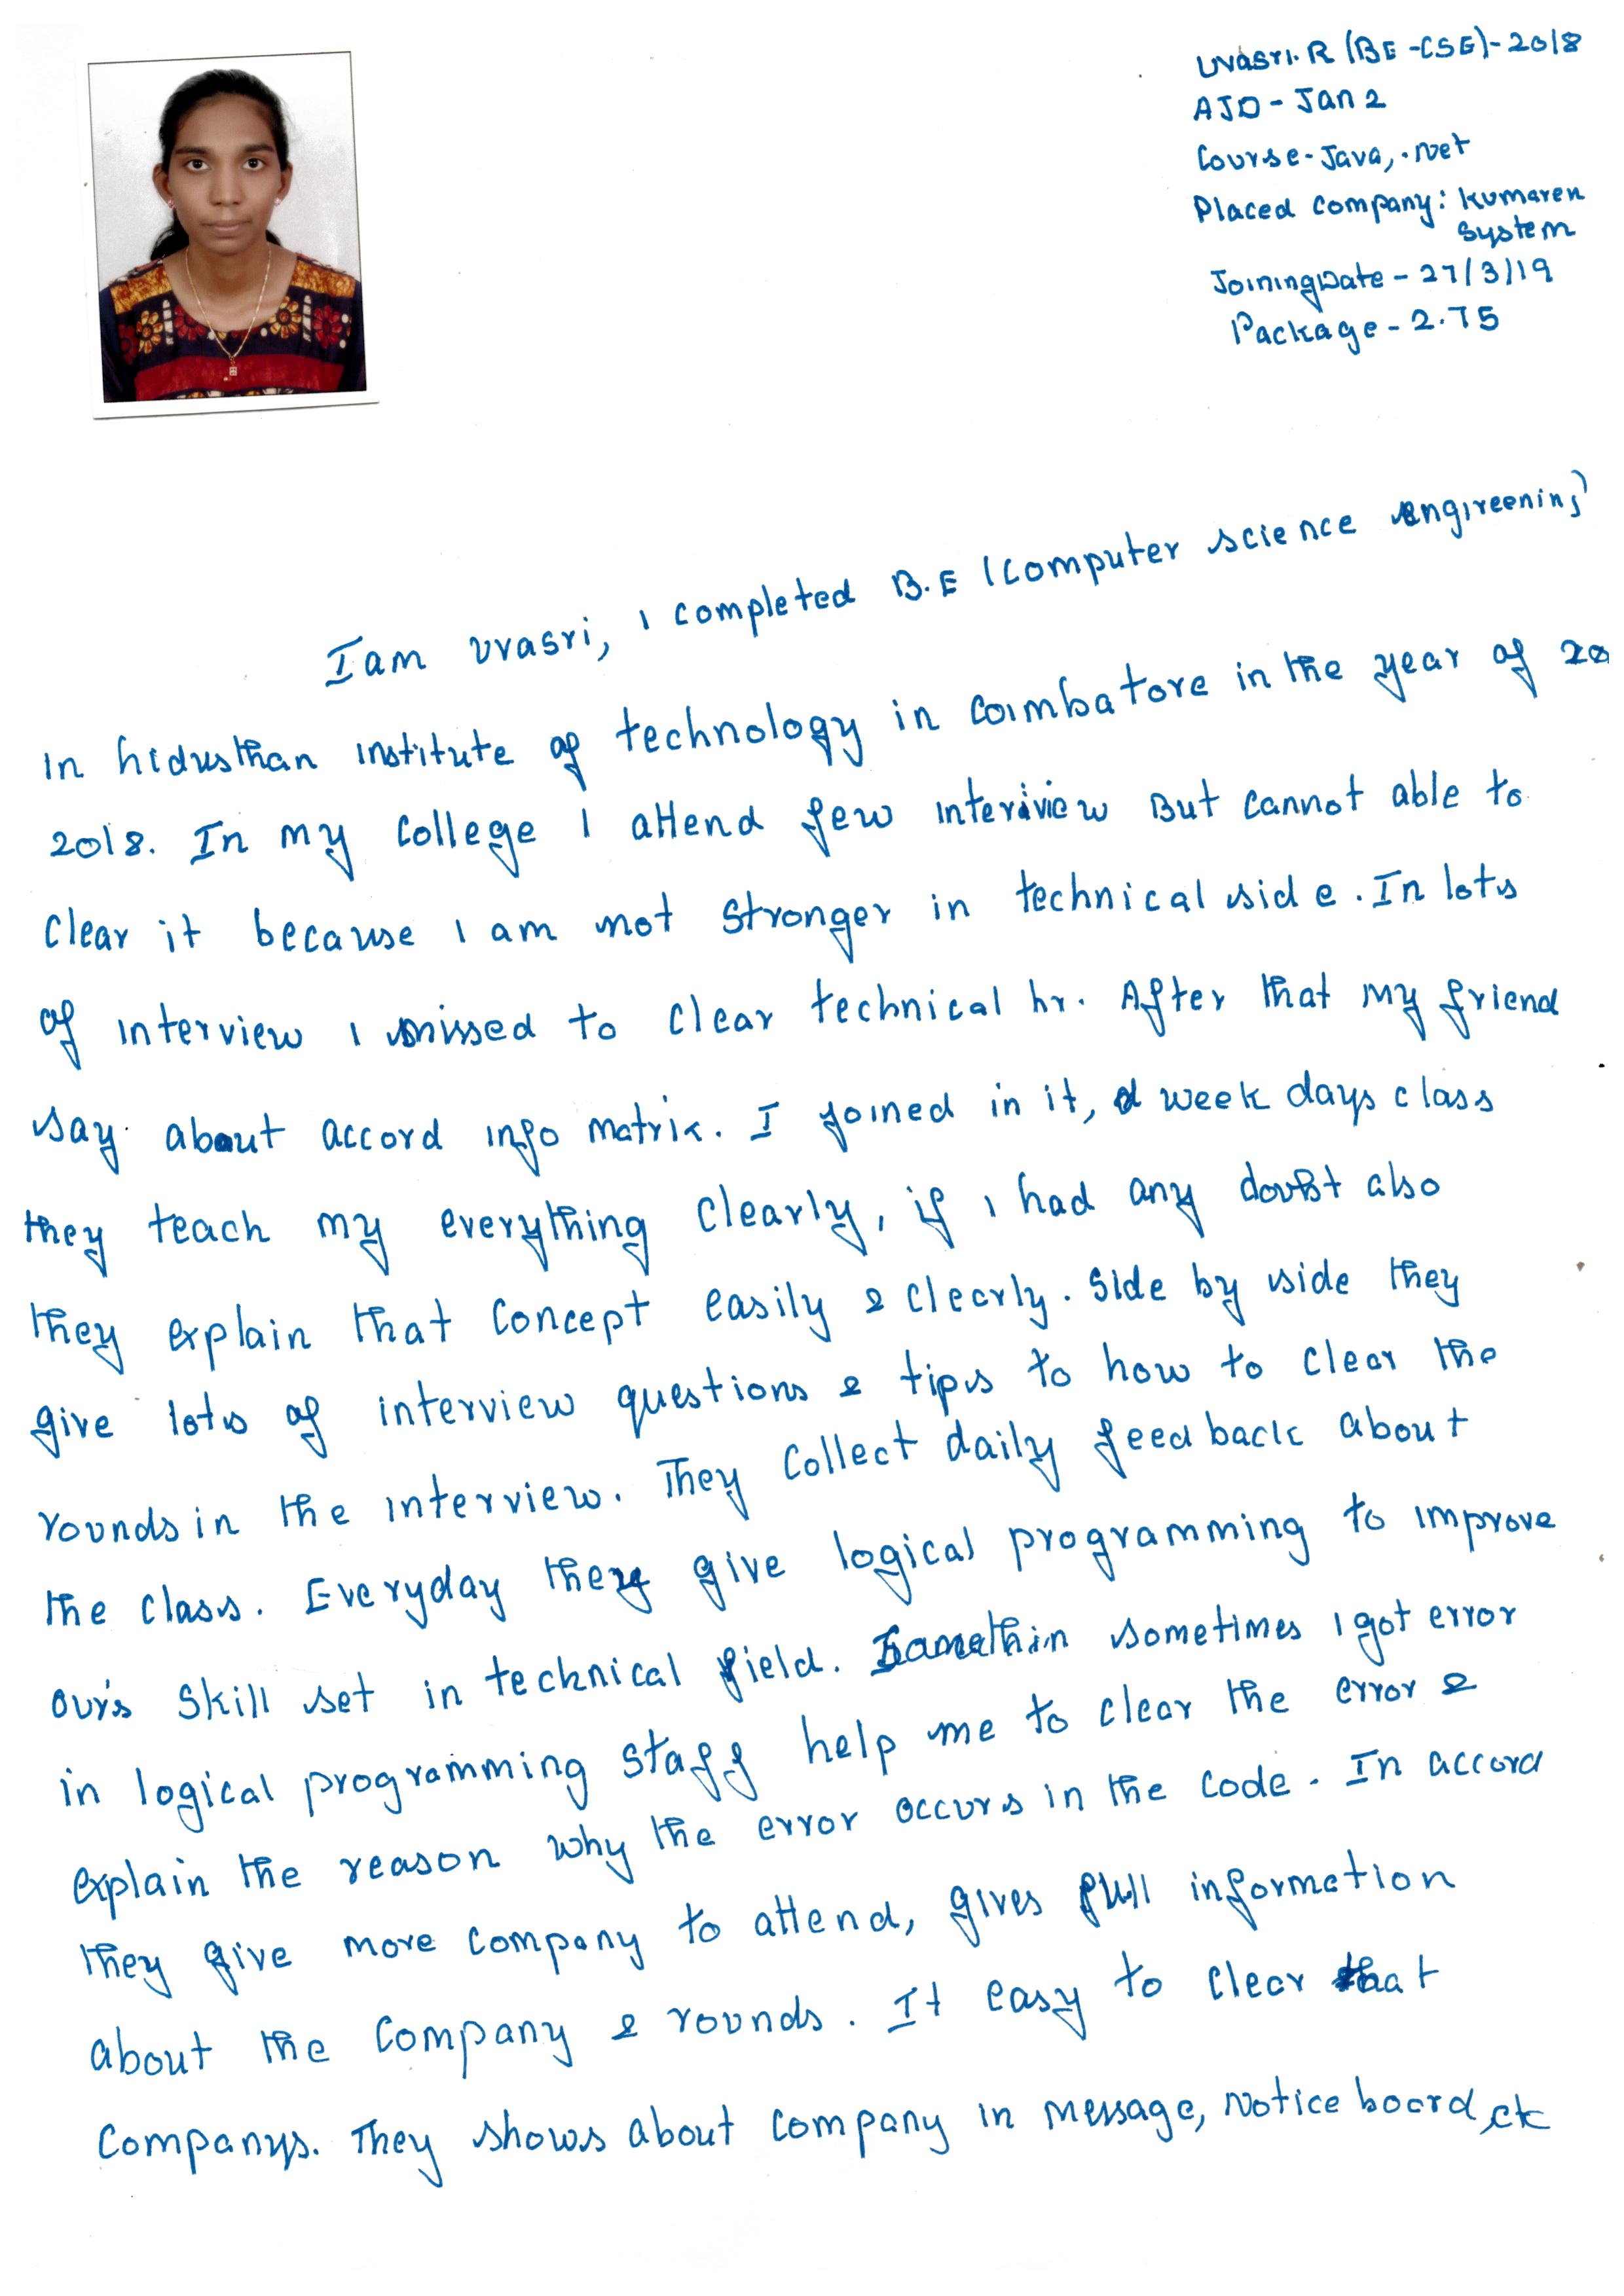 Uvasri. R (BE -CSE)- 2018
AJD - Jan 2
Course- Java, .net
Placed company: kumaren
System
Joining Date - 27/3/19
Package - 2.75
I am uvasri, I completed B.E (computer science engireening)
In hidusthan institute of technology in coimbatore in the year of 20
2018. In my college I attend few interiview But cannot able to
clear it because I am not stronger in technical side. In lots
of interview I missed to clear technical hr. After that my friend
say about accord info matrix. I joined in it, week days class
they teach my everything clearly, if i had any doubt also
they explain that concept easily & clearly. Side by side they
give lots of interview questions & tips to how to clear the
rounds in the interview. They collect daily feedback about
the class. Everyday they give logical programming to improve
our's skill set in technical field. sometimes I got error
in logical programming staff help me to clear the error &
explain the reason why the error occurs in the code. In accord
they give more company to attend, gives full information
about the company & rounds. It easy to clear that
companys. They shows about company in message, notice board, etc